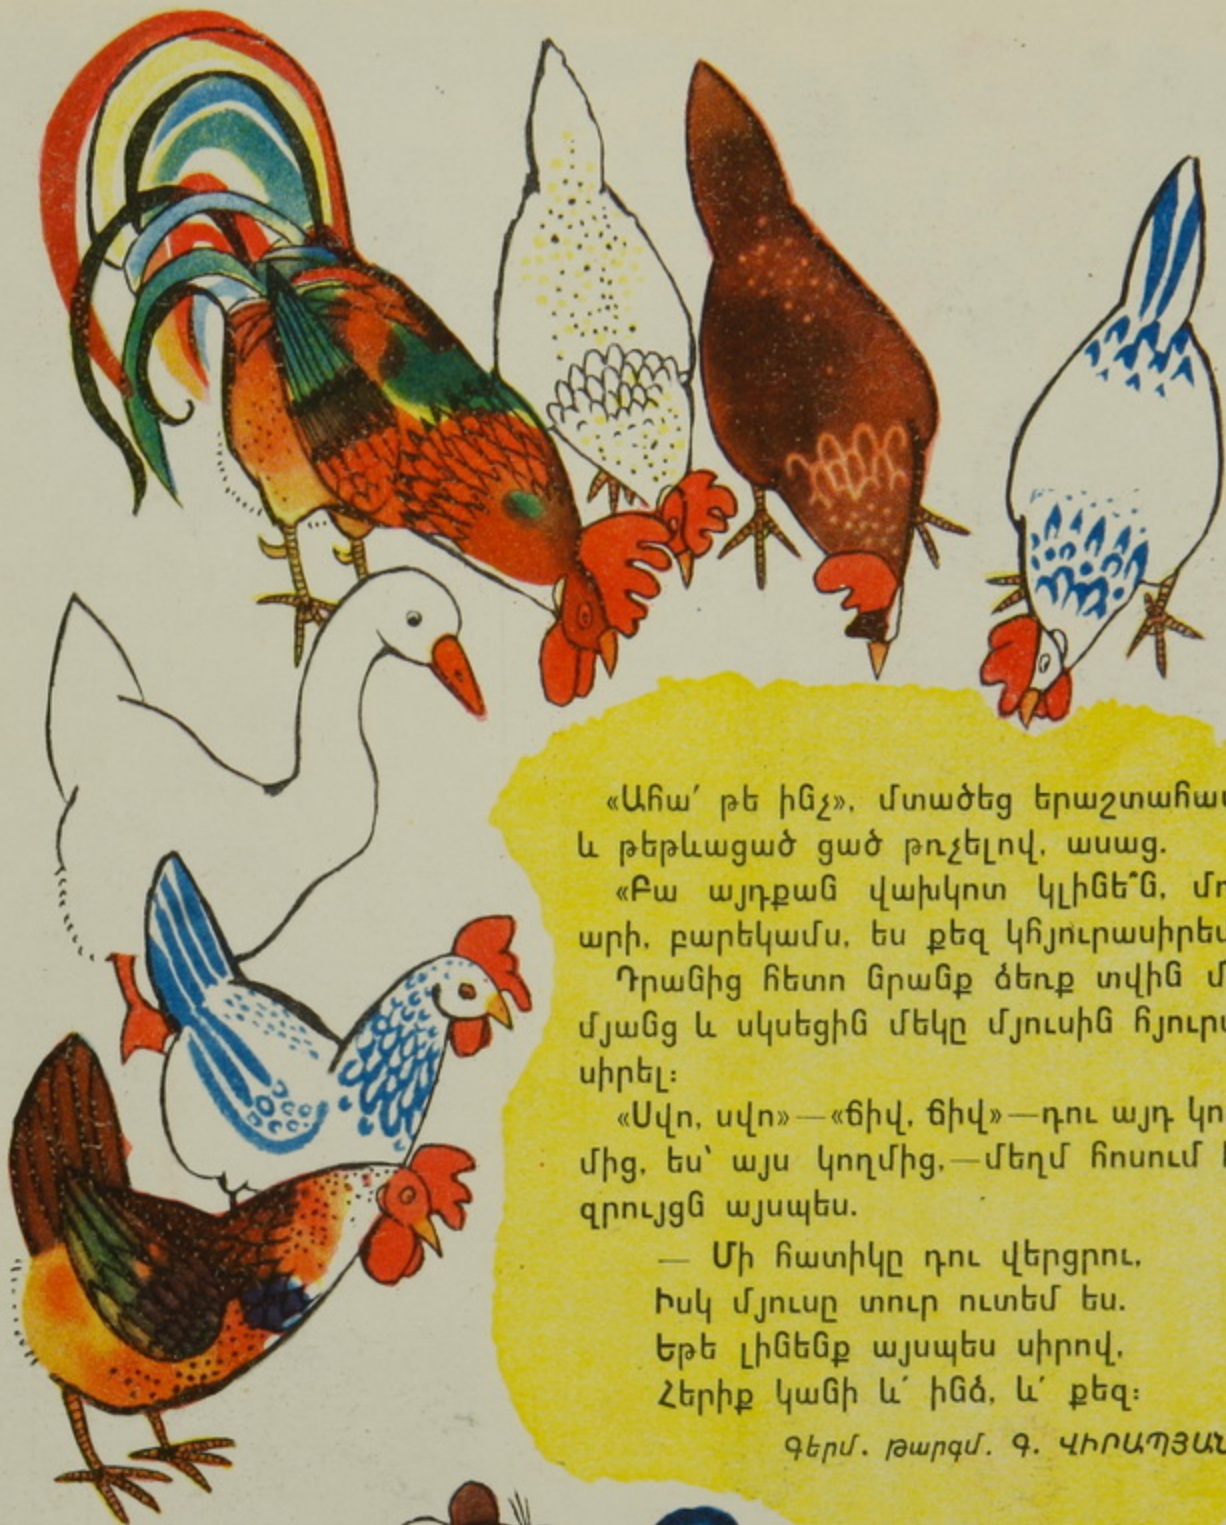 «Ահա՛ թե ինչ», մտածեց
և թեթևացած ցած թռչելով, ասաց.
«Բա այդքան վախկոտ կլինե՞ն,
արի, բարեկամս, ես քեզ
Դրանից հետո նրանք ձեռք տվին
մյանց և սկսեցին մեկը մյուսին
սիրել։
«Սվո, սվո»—«ճիվ, ճիվ»—դու այդ
մից, ես՝ այս կողմից,—մեղմ հոսում
զրույցն այսպես.
— Մի հատիկը դու վերցրու,
Իսկ մյուսը տուր ուտեմ ես.
Եթե լինենք այսպես սիրով,
Հերիք կանի և՛ ինձ, և՛ քեզ։
Գերմ. թարգմ. Գ.